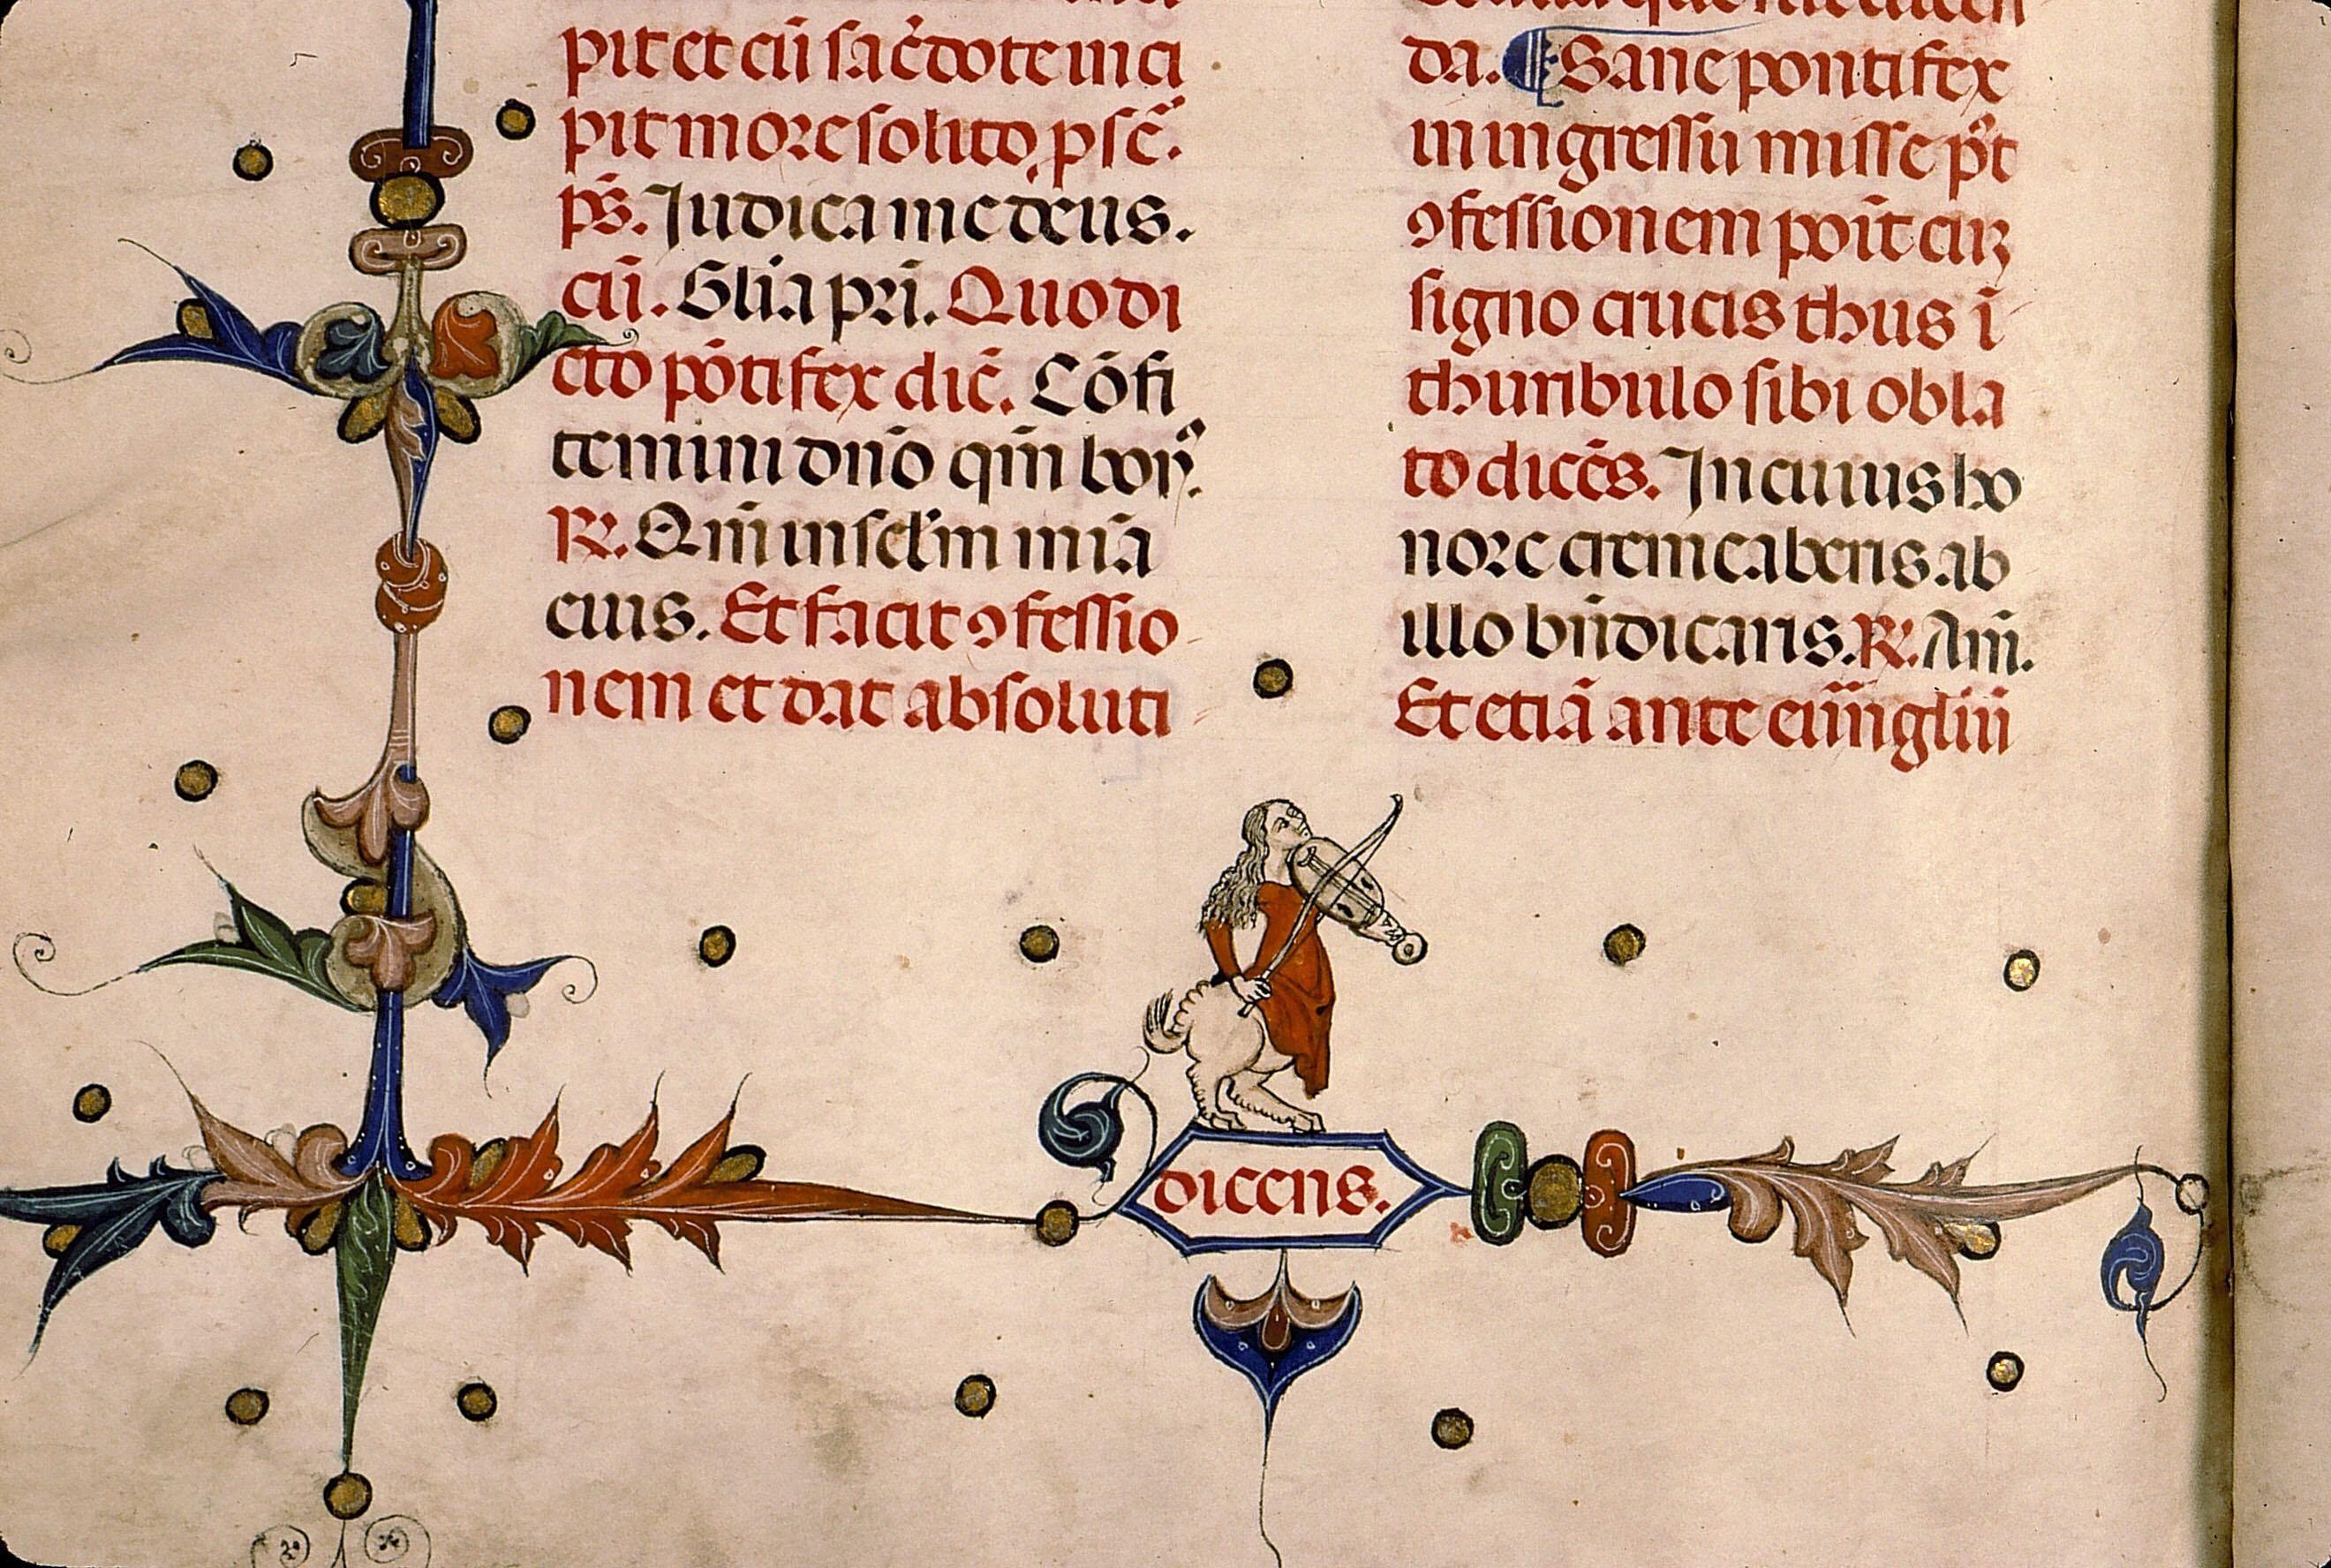 pit et cũ sac̃dote inci
pit more solito, ꝑ sc̃.
ps̃. Judica me deus.
cũ. Glia pri. Quo di
cto põtifex dic̃. Cõfi
temini dño qm̃ bon᷒.
R̷. Qm̃ in sclm mia
eius. Et facit ꝯfessio
nem et dat absoluti
da. ¶ Sane pontifex
in ingressu misse p̃t
ꝯfessionem poĩt cũ
signo crucis thus ĩ
thuribulo sibi obla
to dicẽs. In cuius ho
nore cremeaberis ab
illo bñdicaris. R̷. Am̃.
Et etiã ante euũgliũ
dicens.